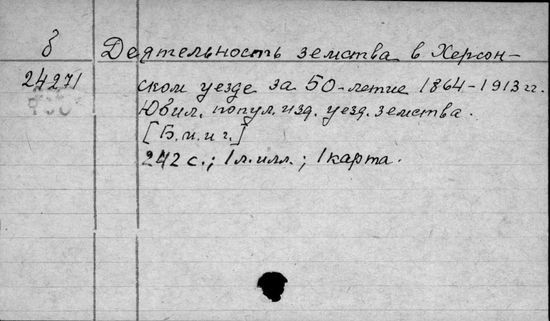 б Деятельность земства в Херсон-
24271 ском уезде за 50-летие 1864-1913 гг.
Юбил. попул. изд. уезд. земства.
[Б. м. и г.]
242 с.; 1 л. илл.; 1 карта.